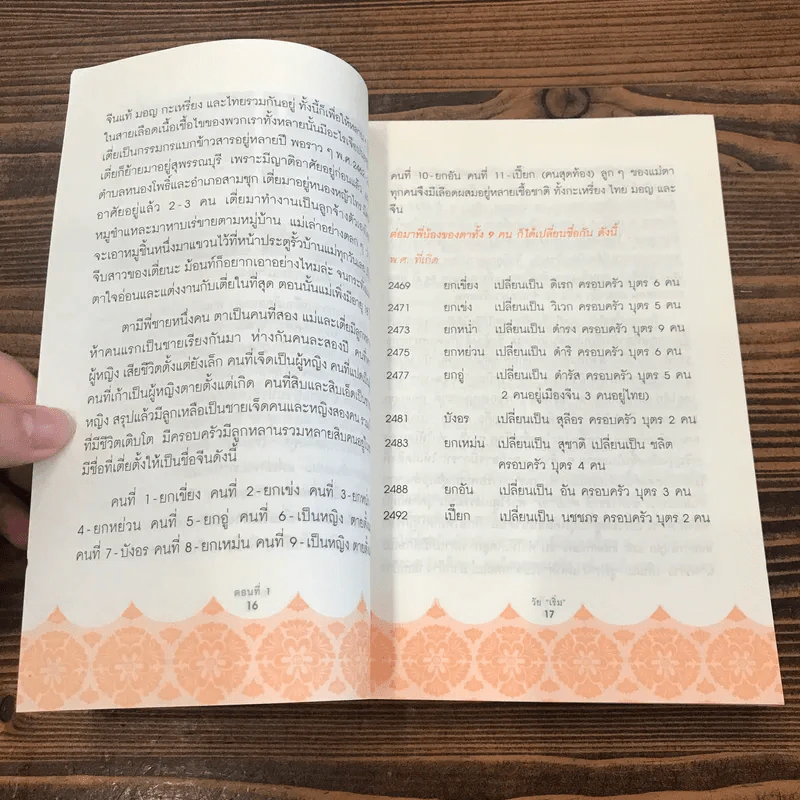 จีนแท้ มอญ กะเหรี่ยง และไทยรวมกันอยู่ ทั้งนี้ก็เพื่อให้
ในสายเลือดเนื้อเชื้อไขของพวกเราทั้งหลายนั้นมีอะไร
เตี่ยเป็นกรรมกรแบกข้าวสารอยู่หลายปี พอราว ๆ พ.ศ.
เตี่ยก็ย้ายมาอยู่สุพรรณบุรี เพราะมีญาติอาศัยอยู่ก่อนแล้ว
ตำบลหนองโพธิ์และอำเภอสามชุก เตี่ยมาอยู่หนองหญ้าไทร
อาศัยอยู่แล้ว 2-3 คน เตี่ยมาทำงานเป็นลูกจ้าง
หมูชำแหละมาหาบเร่ขายตามหมู่บ้าน แม่เล่าอย่างตลก ๆ
จะเอาหมูชิ้นหนึ่งมาแขวนไว้ที่หน้าประตูรั้วบ้านแม่ทุกวันเลย
จีบสาวของเตี่ยนะ ม้อนท์ก็อยากเอาอย่างไหมล่ะ
ตาใจอ่อนและแต่งงานกับเตี่ยในที่สุด ตอนนั้นแม่เพิ่งมีอายุ
ตามีพี่ชายหนึ่งคน ตาเป็นคนที่สอง แม่และเตี่ยมีลูก
ห้าคนแรกเป็นชายเรียงกันมา ห่างกันคนละสองปี คนที่
ผู้หญิง เสียชีวิตตั้งแต่ยังเล็ก คนที่เจ็ดเป็นผู้หญิง คนที่แปด
คนที่เก้าเป็นผู้หญิงตายตั้งแต่เกิด คนที่สิบและสิบเอ็ดเป็น
หญิง สรุปแล้วมีลูกเหลือเป็นชายเจ็ดคนและหญิงสองคน
ที่มีชีวิตเติบโต มีครอบครัวมีลูกหลานรวมหลายสิบคน
มีชื่อที่เตี่ยตั้งให้เป็นชื่อจีนดังนี้
คนที่ 1-ยกเขี่ยง คนที่ 2-ยกเข่ง คนที่ 3-
4-ยกหย่วน คนที่ 5-ยกอู่ คนที่ 6-เป็นหญิง
คนที่ 7-บังอร คนที่ 8-ยกเหม่น คนที่ 9-เป็นหญิง
ตอนที่ 1
16
คนที่ 10-ยกอัน คนที่ 11-เปี๊ยก (คนสุดท้อง) ลูก ๆ ของแม่ตา
ทุกคนจึงมีเลือดผสมอยู่หลายเชื้อชาติ ทั้งกะเหรี่ยง ไทย มอญ และ
จีน
ต่อมาพี่น้องของตาทั้ง 9 คน ก็ได้เปลี่ยนชื่อกัน ดังนี้
พ.ศ. ที่เกิด
2469 ยกเขี่ยง เปลี่ยนเป็น ดิเรก ครอบครัว บุตร 6 คน
2471 ยกเข่ง เปลี่ยนเป็น วิเวก ครอบครัว บุตร 5 คน
2473 ยกหน่ำ เปลี่ยนเป็น ดำรง ครอบครัว บุตร 9 คน
2475 ยกหย่วน เปลี่ยนเป็น ดำริ ครอบครัว บุตร 6 คน
2477 ยกอู่ เปลี่ยนเป็น ดำรัส ครอบครัว บุตร 5 คน
2 คนอยู่เมืองจีน 3 คนอยู่ไทย)
2481 บังอร เปลี่ยนเป็น สุลีอร ครอบครัว บุตร 2 คน
2483 ยกเหม่น เปลี่ยนเป็น สุชาติ เปลี่ยนเป็น ชลิต
ครอบครัว บุตร 4 คน
2488 ยกอัน เปลี่ยนเป็น อัน ครอบครัว บุตร 3 คน
2492 เปี๊ยก เปลี่ยนเป็น นชชภร ครอบครัว บุตร 2 คน
วัย "เริ่ม"
17